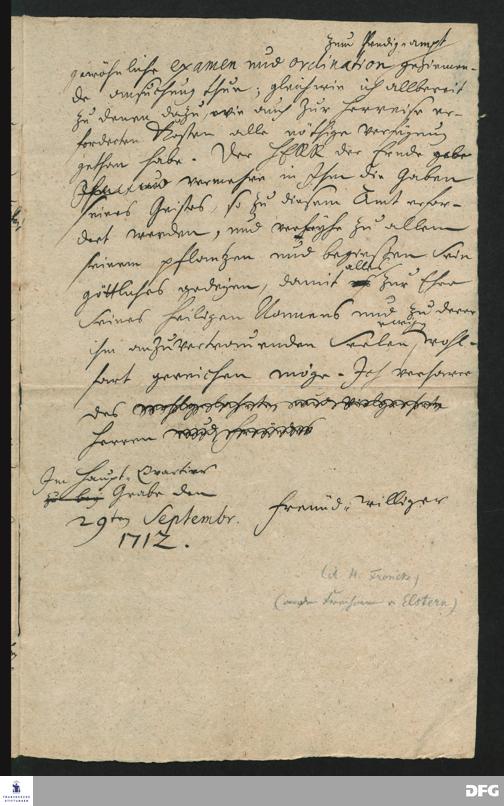 zum Predig-ampt
gewöhnliche examen und ordination gezieme-
de ansuchung thue; gleichwie ich allbereit
zu denen dazu, wie auch zur herreise er-
forderten Kosten alle nöthige verfügung
gethan habe. Der HERR der Ernde gebe
und vermehre in Ihm die Gaben
seines Geistes, so zu diesem Amt erfor-
dert werden, und verleyhe zu allem
seinem pflantzen und begießen sein
göttliches gedeyen, damit alles zur Ehre
seines heiligen Namens und zu derer
ihm anzuvertrauenden Seelen ewigen wohl-
fart gereichen möge. Ich verharre
des
Herren
Im Haupt-Quartier
Grabe den
29ten Septembr.
1712.
freund-williger
(A. H. Francke)
(an den Freiherrn v Elstern)
FRANCKESCHE STIFTUNGEN
DFG